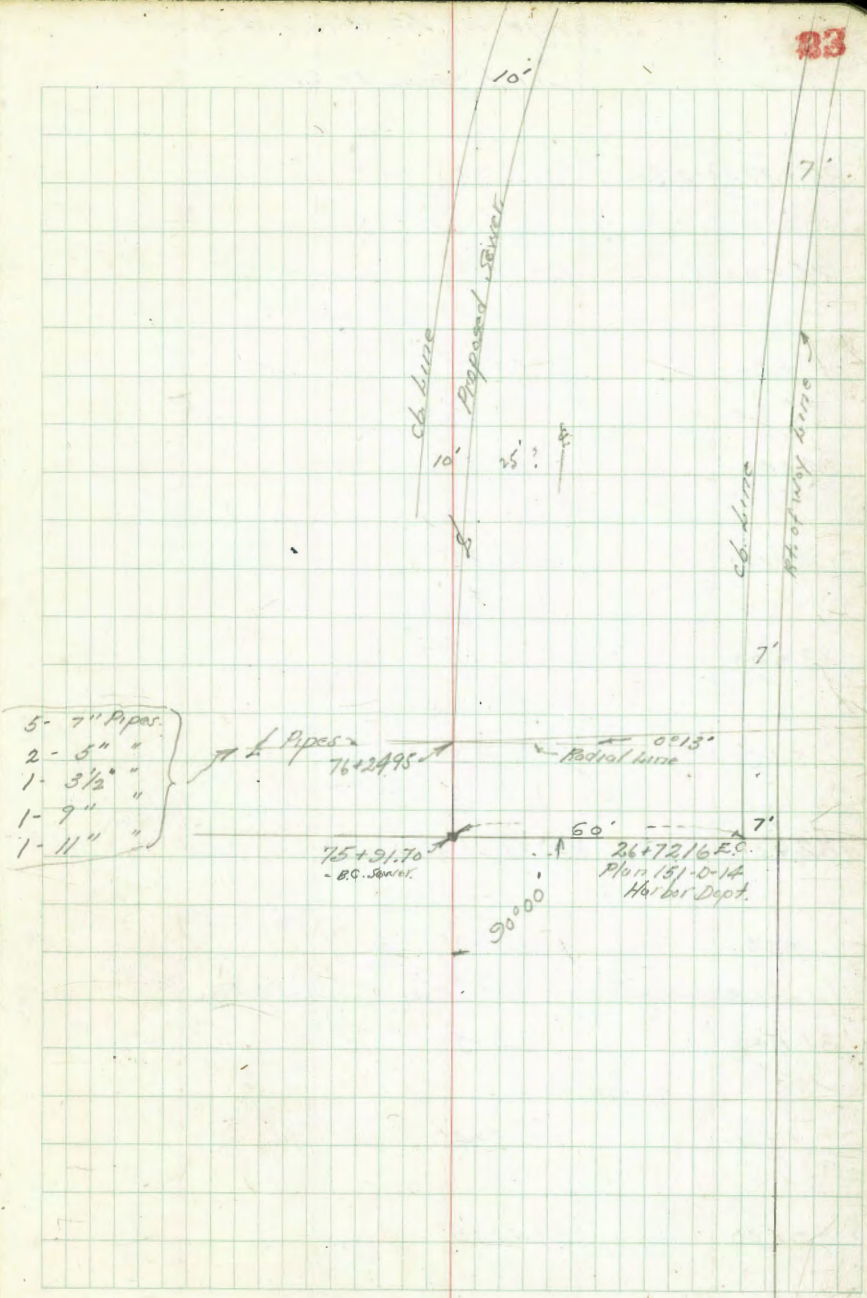 83
10'
7'
cb. Line
Proposed Sewer
10'
25'?
cb. Line
Rt. of Way Line
7'
5- 7" Pipes
2- 5" "
1- 3½" "
1- 9" "
1- 11" "
Pipes
76+24.95
0°13'
Radial Line
60'
7'
75+91.70
B.C. Sewer.
26+72.16 E.C.
Plan 151-D-14
Harbor Dept.
90°00'